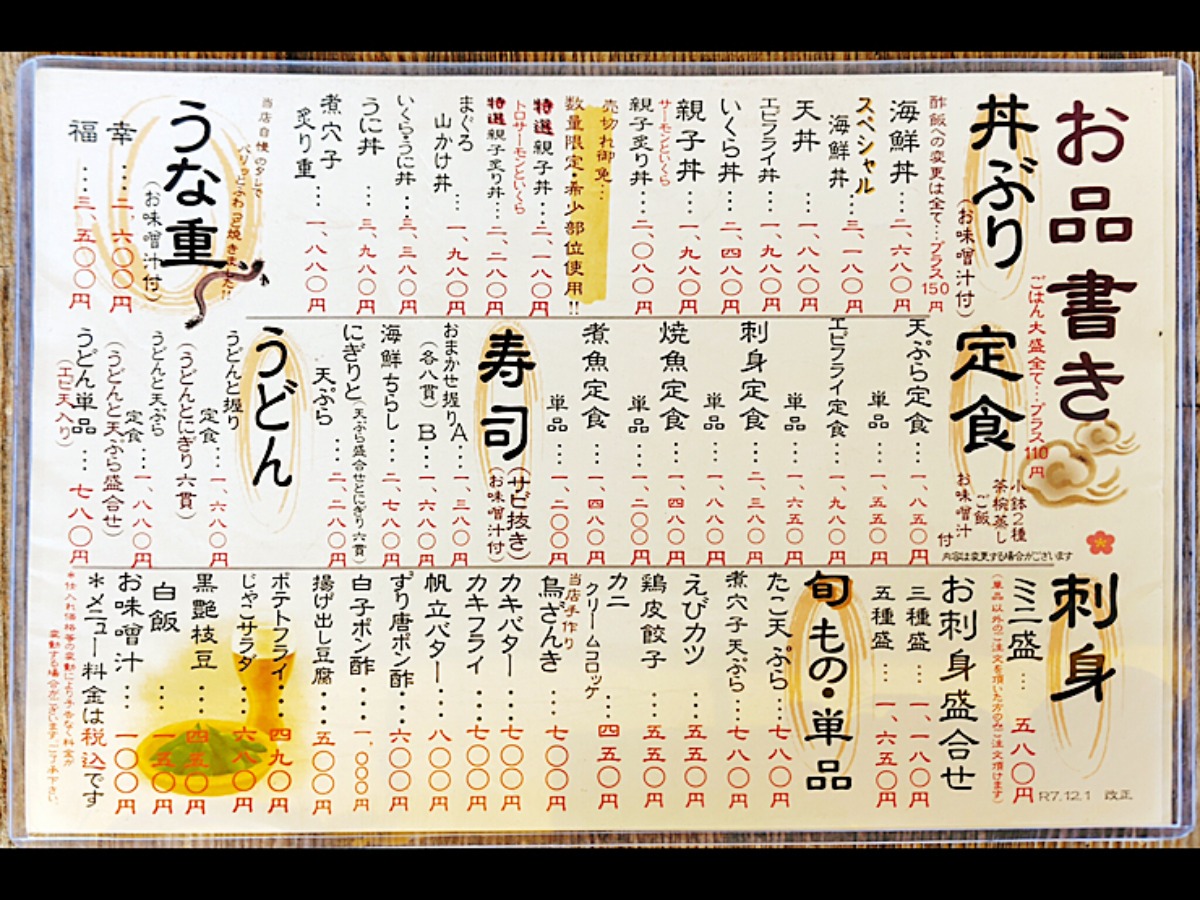 お品書き
ごはん大盛全て…プラス110円
丼ぶり
(お味噌汁付)
酢飯への変更は全て…プラス150円
海鮮丼…二、六八〇円
スペシャル
海鮮丼…三、一八〇円
天丼…一、八八〇円
エビフライ丼…一、九八〇円
いくら丼…二、四八〇円
親子丼…一、九八〇円
サーモンといくら
親子炙り丼…二、〇八〇円
売切れ御免…
数量限定・希少部位使用!!
特選親子丼…二、一八〇円
トロサーモンといくら
特選親子炙り丼…二、二八〇円
まぐろ
山かけ丼…一、九八〇円
いくらうに丼…三、三八〇円
うに丼…三、九八〇円
煮穴子
炙り重…一、八八〇円
うな重
(お味噌汁付)
当店自慢のタレで
パリッとふわっと焼きました!!
幸…二、六〇〇円
福…三、五〇〇円
定食
小鉢2種
茶椀蒸し
ご飯
お味噌汁
付
内容は変更する場合がございます
天ぷら定食…一、八五〇円
単品…一、五五〇円
エビフライ定食…一、九八〇円
単品…一、六五〇円
刺身定食…二、三八〇円
単品…一、八八〇円
焼魚定食…一、四八〇円
単品…一、二〇〇円
煮魚定食…一、四八〇円
単品…一、二〇〇円
寿司
(サビ抜き)
(お味噌汁付)
おまかせ握り
(各八貫)
A…一、三八〇円
B…一、六八〇円
海鮮ちらし…二、七八〇円
にぎりと
天ぷら
(天ぷら盛合せとにぎり六貫)
…二、二八〇円
うどん
うどんと握り
定食…一、六八〇円
(うどんとにぎり六貫)
うどんと天ぷら
定食…一、八八〇円
(うどんと天ぷら盛合せ)
うどん単品…七八〇円
(エビ天入り)
刺身
ミニ盛…五八〇円
(単品以外のご注文を頂いた方のみご注文頂けます)
お刺身盛合せ
三種盛…一、一八〇円
五種盛…一、六五〇円
旬もの・単品
たこ天ぷら…七八〇円
煮穴子天ぷら…七八〇円
えびカツ…五五〇円
鶏皮餃子…五五〇円
カニ
クリームコロッケ…四五〇円
当店手作り
鳥ざんき…七〇〇円
カキバター…七〇〇円
カキフライ…七〇〇円
帆立バター…八〇〇円
ずり唐ポン酢…六〇〇円
白子ポン酢…一、〇〇〇円
揚げ出し豆腐…五〇〇円
ポテトフライ…四九〇円
じゃこサラダ…六八〇円
黒艶枝豆…四五〇円
白飯…一五〇円
お味噌汁…一〇〇円
*メニュー料金は税込です
*仕入れ価格等の変動により予告なく料金が
変動する場合がございます。ご了承下さい。
R7.12.1 改正